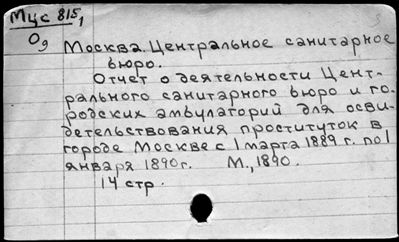 Мцс 815,
О9
Москва. Центральное санитарное
бюро.
Отчет о деятельности Цент-
рального санитарного бюро и го-
родских амбулаторий для осви-
детельствования проституток в
городе Москве с 1 марта 1889 г. по 1
января 1890 г. М., 1890.
14 стр.